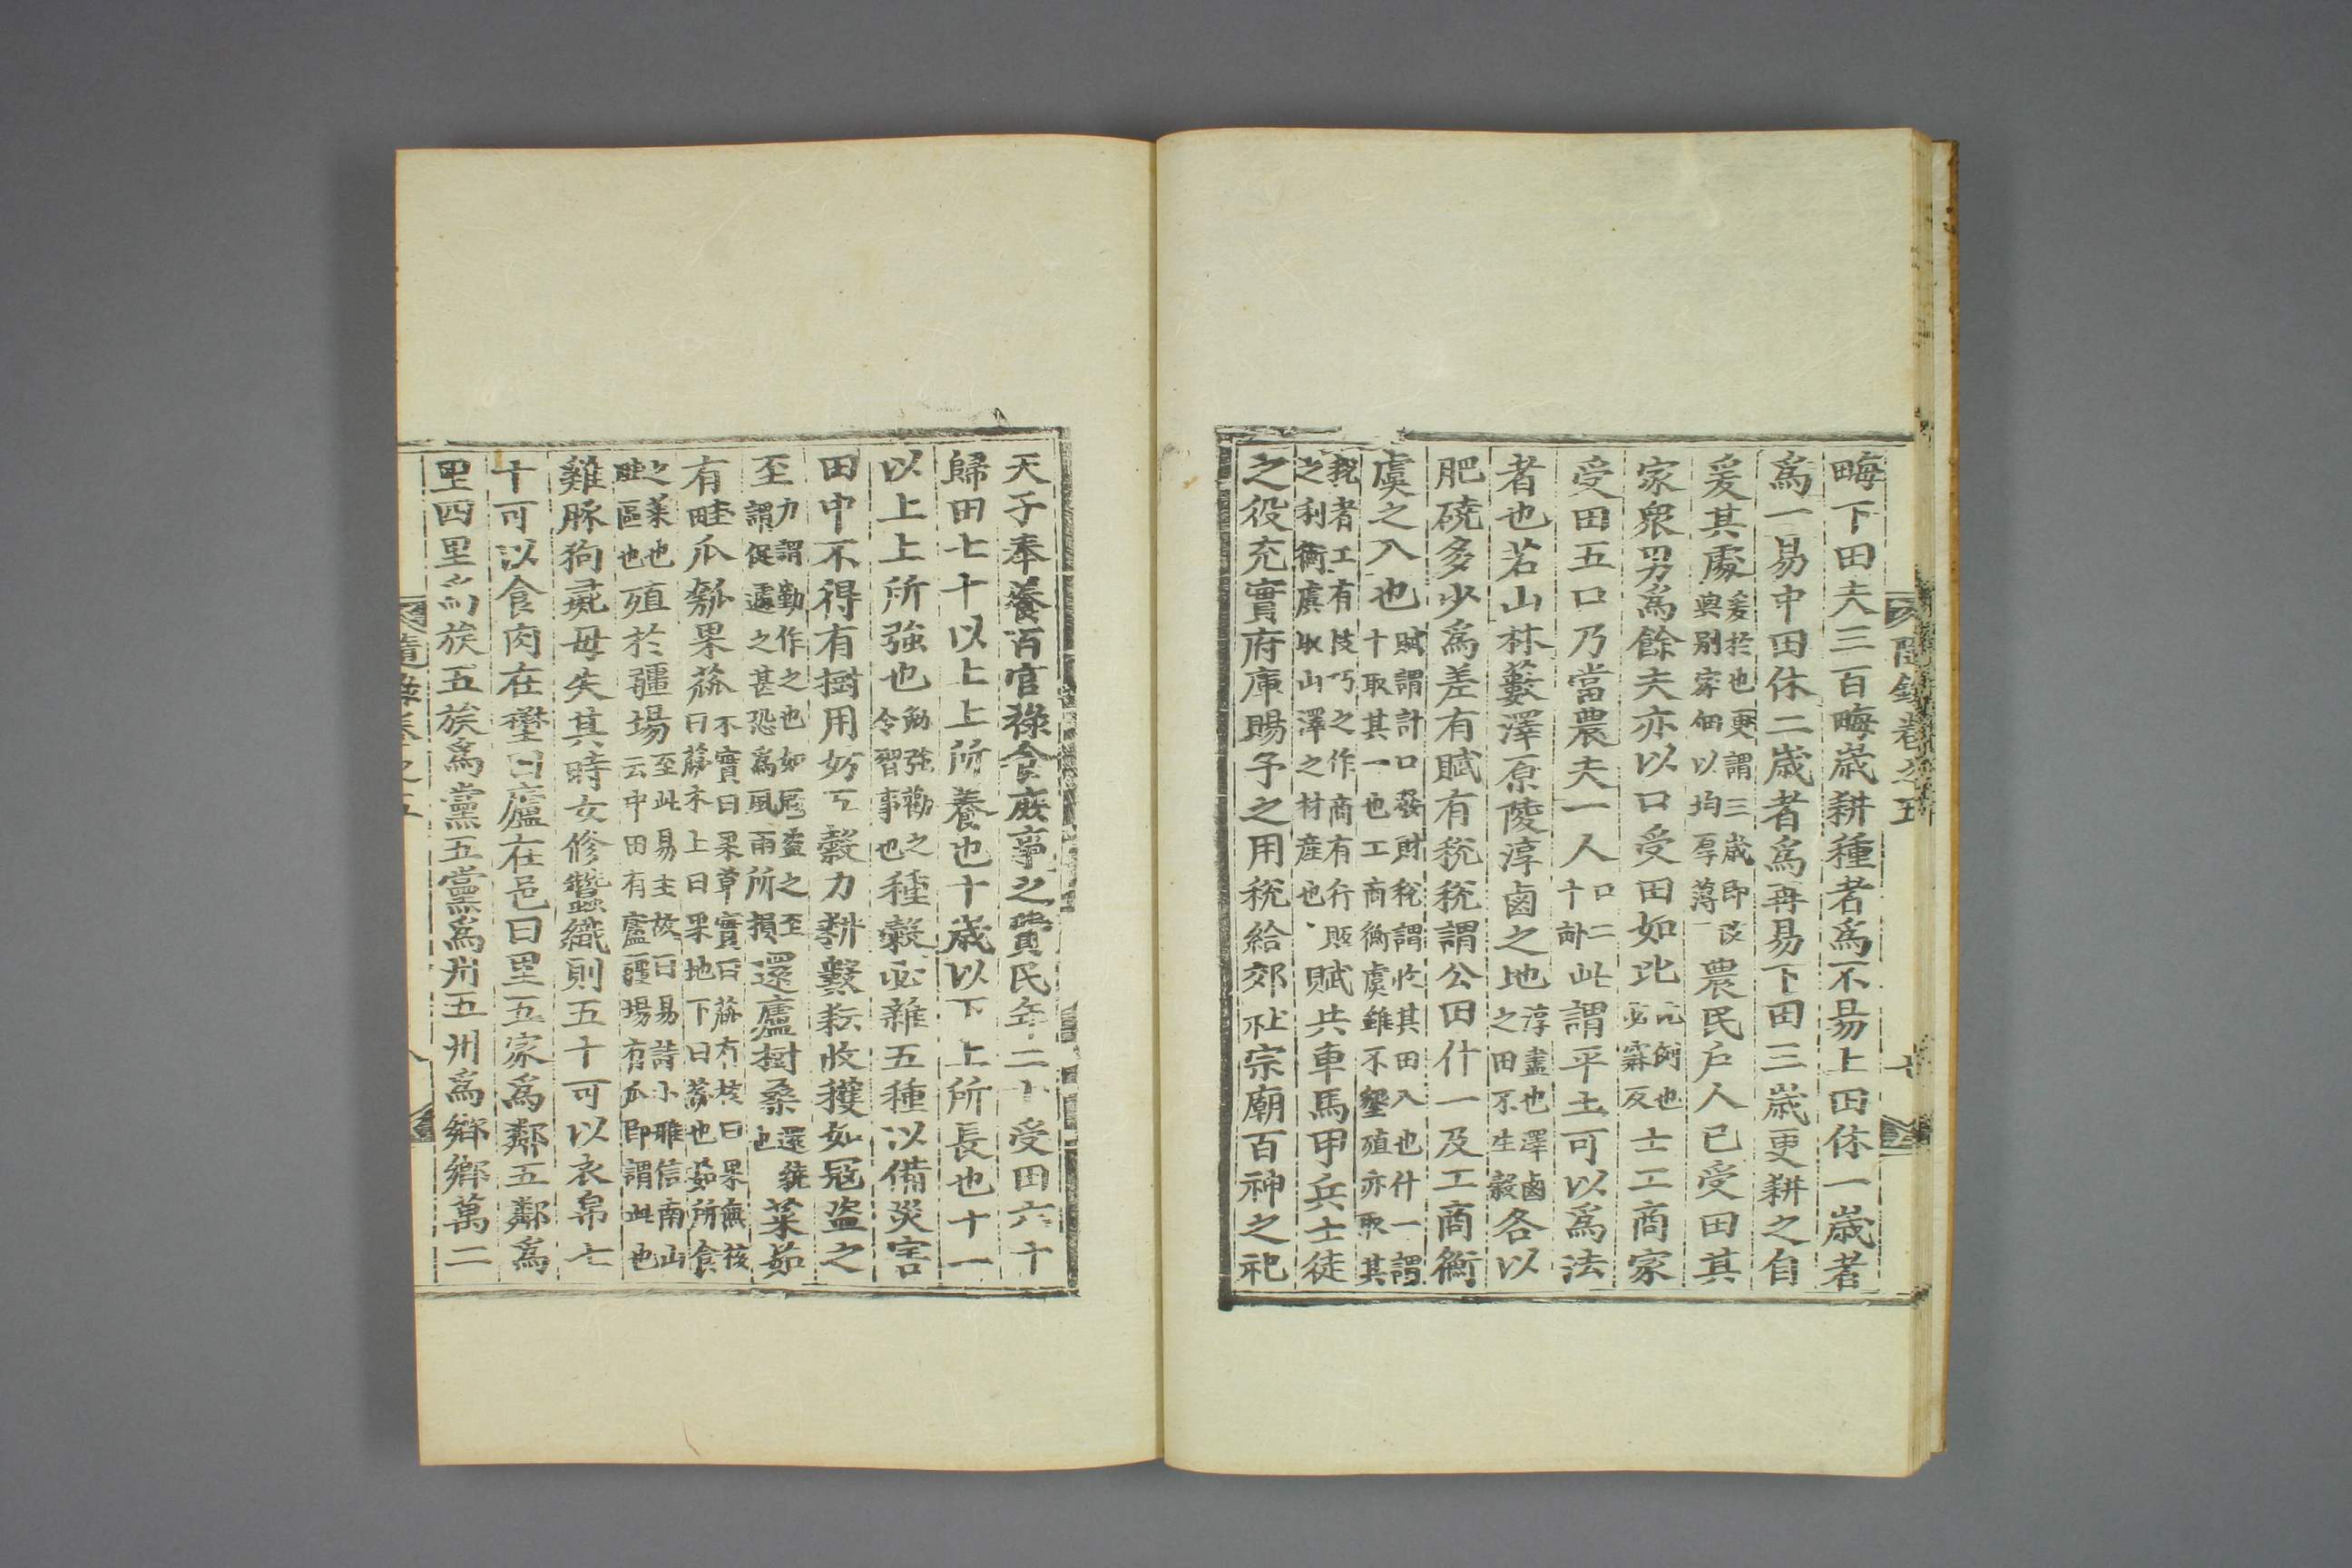 隨錄卷之五 七
畮下田夫三百畮歲耕種者爲不易上田休一歲者
爲一易中田休二歲者爲再易下田三歲更耕之自
爰其處爰於也更謂三歲即改與別家佃以均厚薄農民戶人已受田其
家衆男爲餘夫亦以口受田如比比例也必寐反士工商家
受田五口乃當農夫一人口二十畮此謂平土可以爲法
者也若山林藪澤原陵淳鹵之地淳盡也澤鹵之田不生穀各以
肥磽多少爲差有賦有稅稅謂公田什一及工商衡
虞之入也賦謂計口發財稅謂收其田入也什一謂十取其一也工商衡虞雖不墾殖亦取其
稅者工有技巧之作商有行販之利衡虞取山澤之材産也賦共車馬甲兵士徒
之役充實府庫賜予之用稅給郊社宗廟百神之祀
天子奉養百官祿食庶事之費民年二十受田六十
歸田七十以上上所養也十歲以下上所長也十一
以上上所強也勉強勸之令習事也種穀必雜五種以備災害
田中不得有樹用妨五穀力耕數耘收穫如寇盜之
至力謂勤作之也如寇盜之至謂促遽之甚恐爲風雨所損還廬樹桑還繞也菜茹
有畦瓜瓠果蓏不實曰果草實曰蓏有核曰果無核曰蓏木上曰果地下曰蓏也茹所食
之菜也畦區也殖於疆場至此易主故曰易詩小雅信南山云中田有廬疆場有瓜即謂此也
雞豚狗彘毋失其時女修蠶織則五十可以衣帛七
十可以食肉在壄曰廬在邑曰里五家爲鄰五鄰爲
里四里爲族五族爲黨五黨爲州五州爲鄉鄉萬二
隨錄卷之五 八